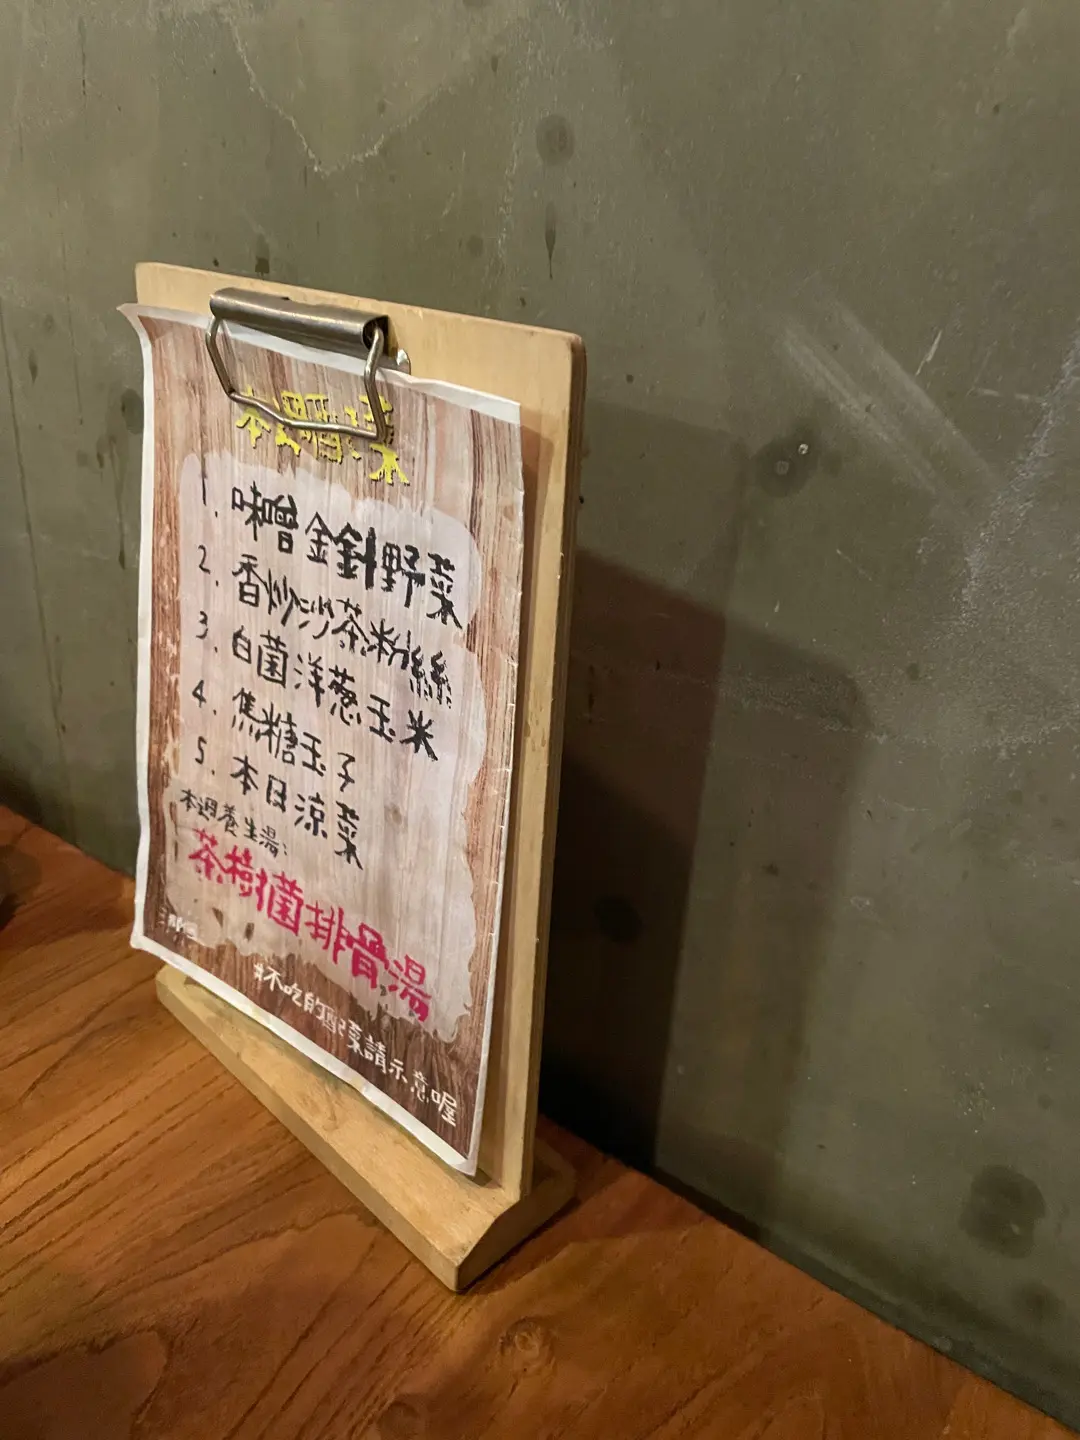 1. 味噌金針野菜
2. 香炒沙茶粉絲
3. 白菌洋蔥玉米
4. 焦糖玉子
5. 本日涼菜
本週養生湯:
茶樹菌排骨湯
#不吃的配菜請示意喔